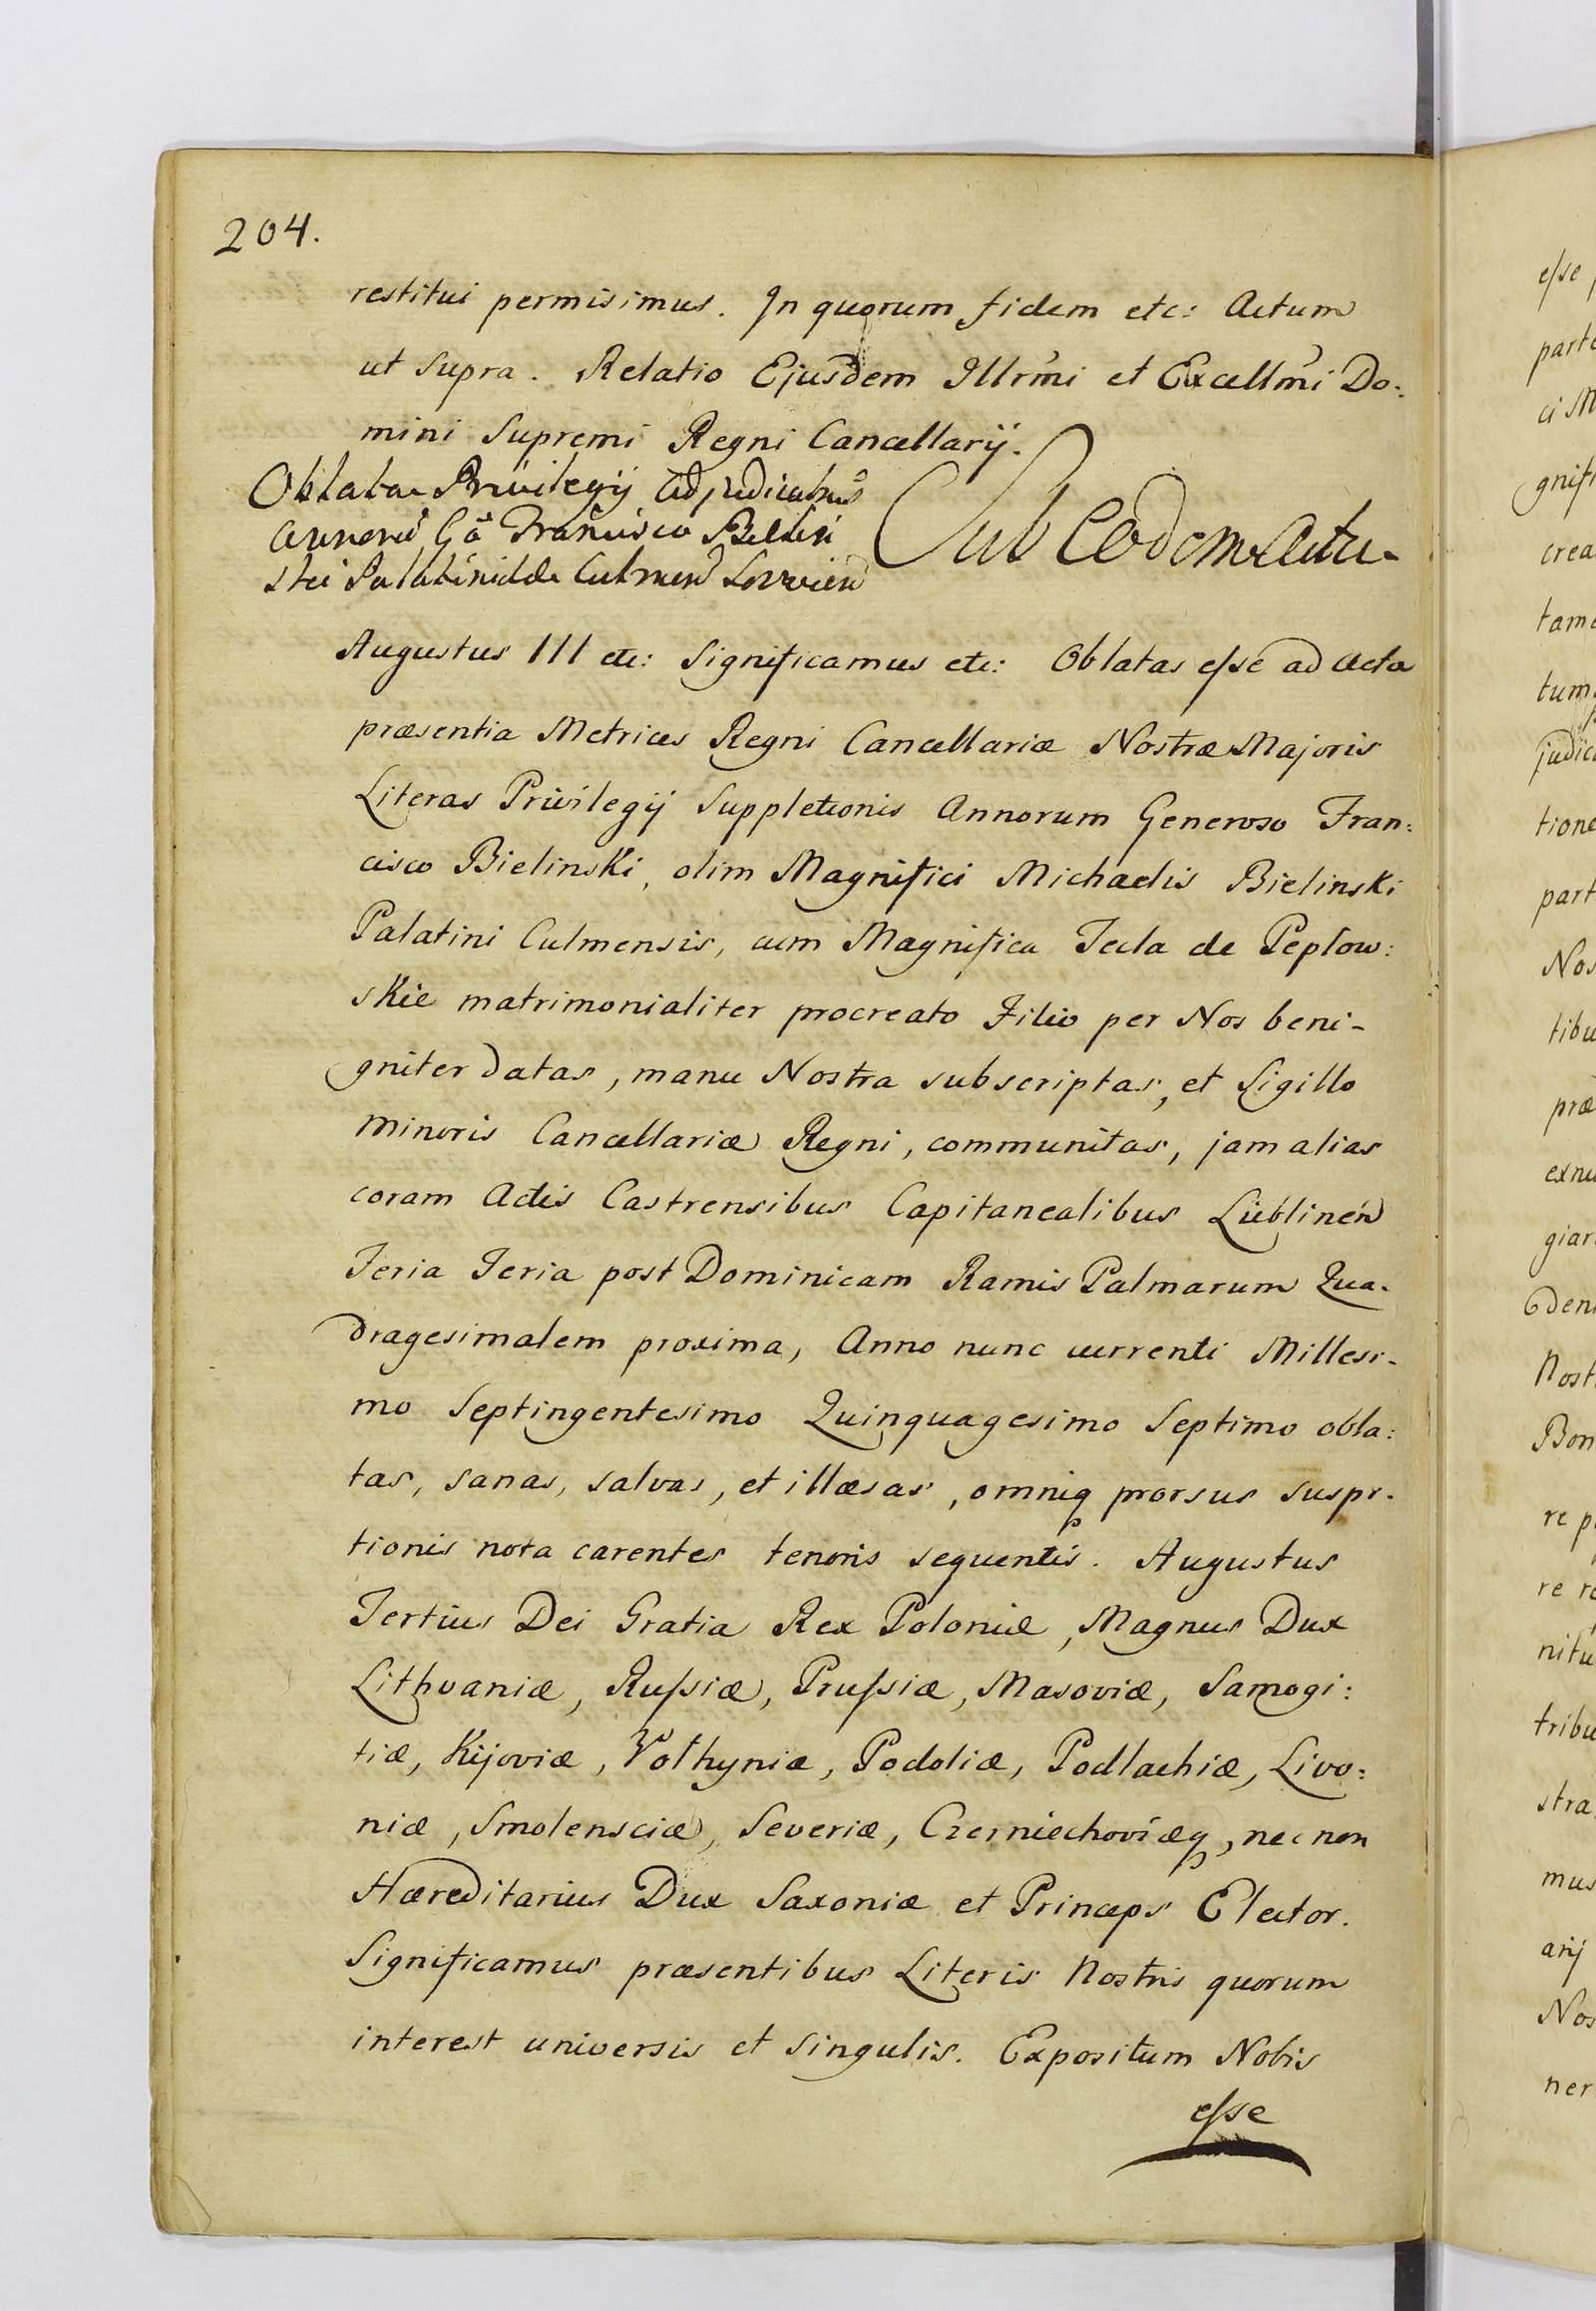 204.
restitui permisimus. In quorum fidem etc: Actum
ut supra. Relatio Ejusdem Illrmi et Excellmi Do:
mini Supremi Regni Cancellarij.
Oblata Privilegij
Annorū Gō Francisco Bielin
skei Palatinidae Culmen
Sub Eodem Actu
Augustus III etc: Significamus etc: Oblatas esse ad Acta
præsentia Metrices Regni Cancellariæ Nostræ Majoris
Literas Privilegij Suppletionis Annorum Generoso Fran:
cisco Bielinski, olim Magnifici Michaelis Bielinski
Palatini Culmensis, cum Magnifica Tecla de Peplow:
skie matrimonialiter procreato Filio per Nos beni-
gniter datas, manu Nostra subscriptas, et Sigillo
minoris Cancellariæ Regni, communitas, jam alias
coram Actis Castrensibus Capitanealibus Lublinen
Feria Teria post Dominicam Ramis Palmarum Qua-
dragesimalem proxima, Anno nunc currenti Millesi-
mo Septingentesimo Quinquagesimo Septimo obla:
tas, sanas, salvas, et illæsas, omniq prorsus suspi-
tionis nota carentes tenoris sequentis. Augustus
Tertius Dei Gratia Rex Poloniæ, Magnus Dux
Lithvaniæ, Russiæ, Prussiæ, Masoviæ, Samogi:
tiæ, Kijoviæ, Volhyniæ, Podoliæ, Podlachiæ, Livo:
niæ, Smolensciæ, Severiæ, Czerniechoviæq, nec non
Hæreditarius Dux Saxoniæ et Princeps Elector.
Significamus præsentibus Literis Nostris quorum
interest universis et singulis. Expositum Nobis
esse